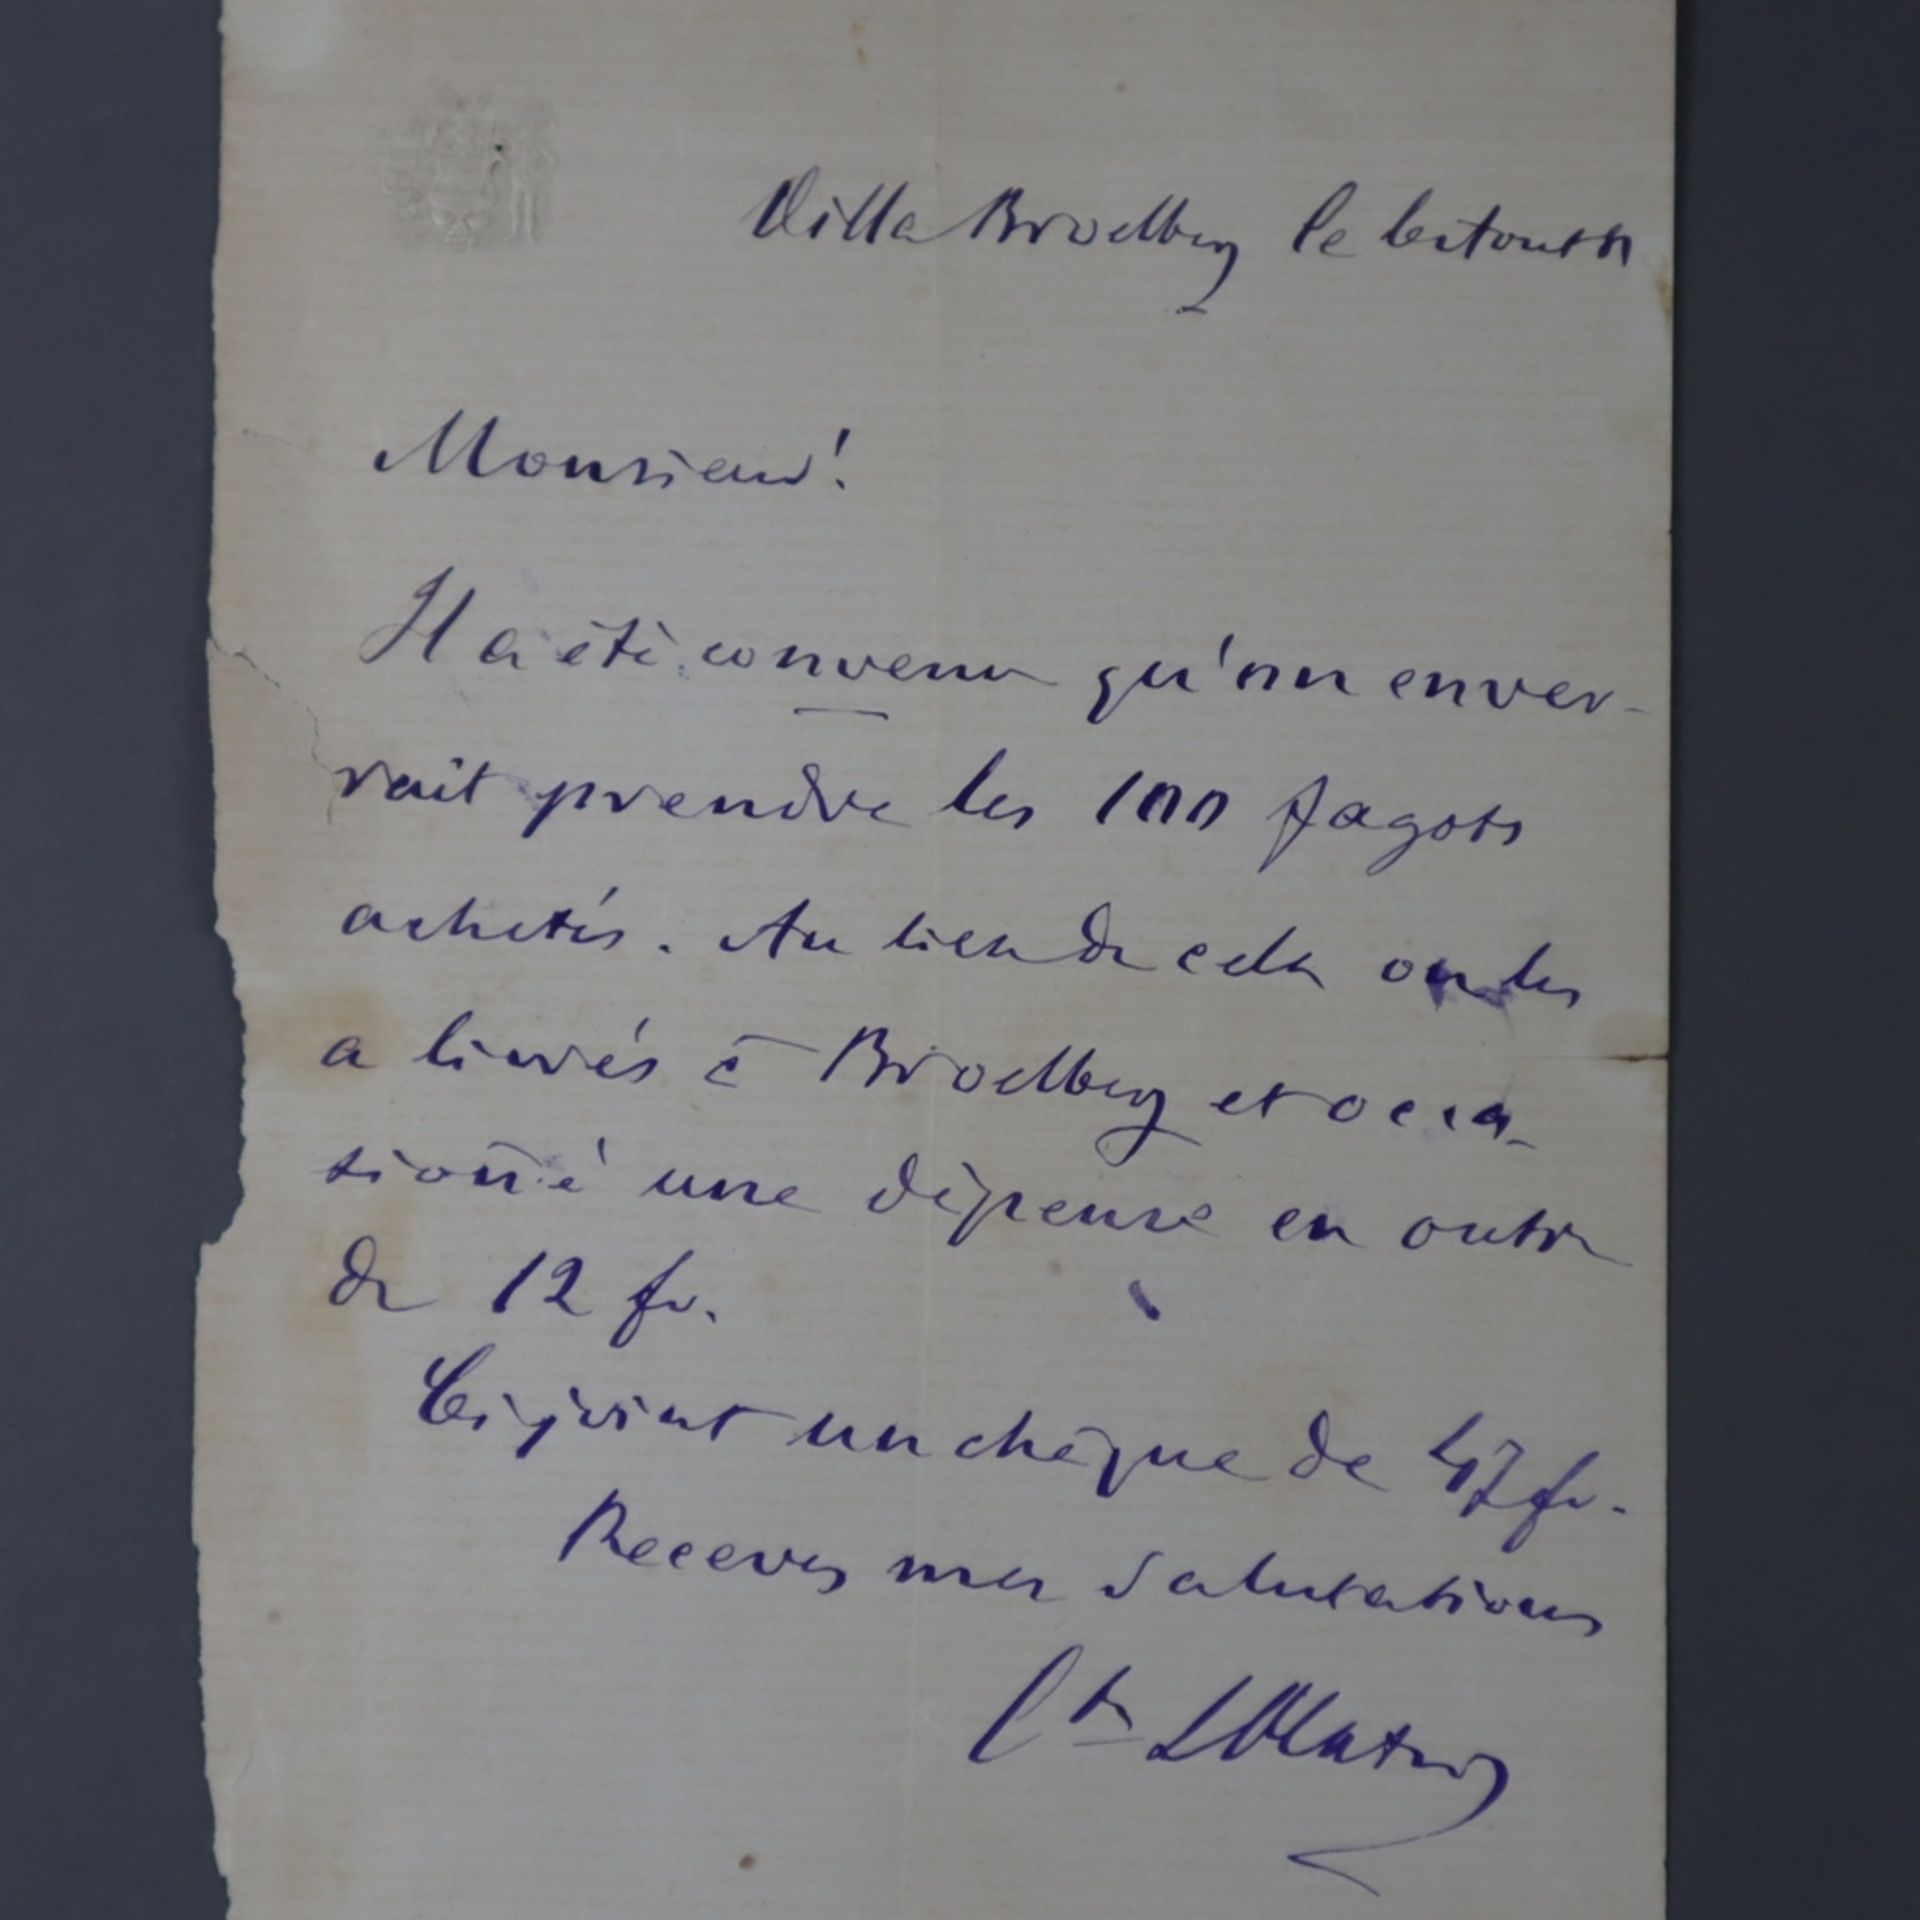 Villa Broelberg le
Monsieur!
Il a été convenu qu'on enver-
rait prendre les 100 fagots
achetés. Au lieu de cela on les
a livrés à Broelberg et occa-
sioné une dépense en outre
de 12 fr.
Ci joint un chèque de 47 fr.
Recevez mes salutations